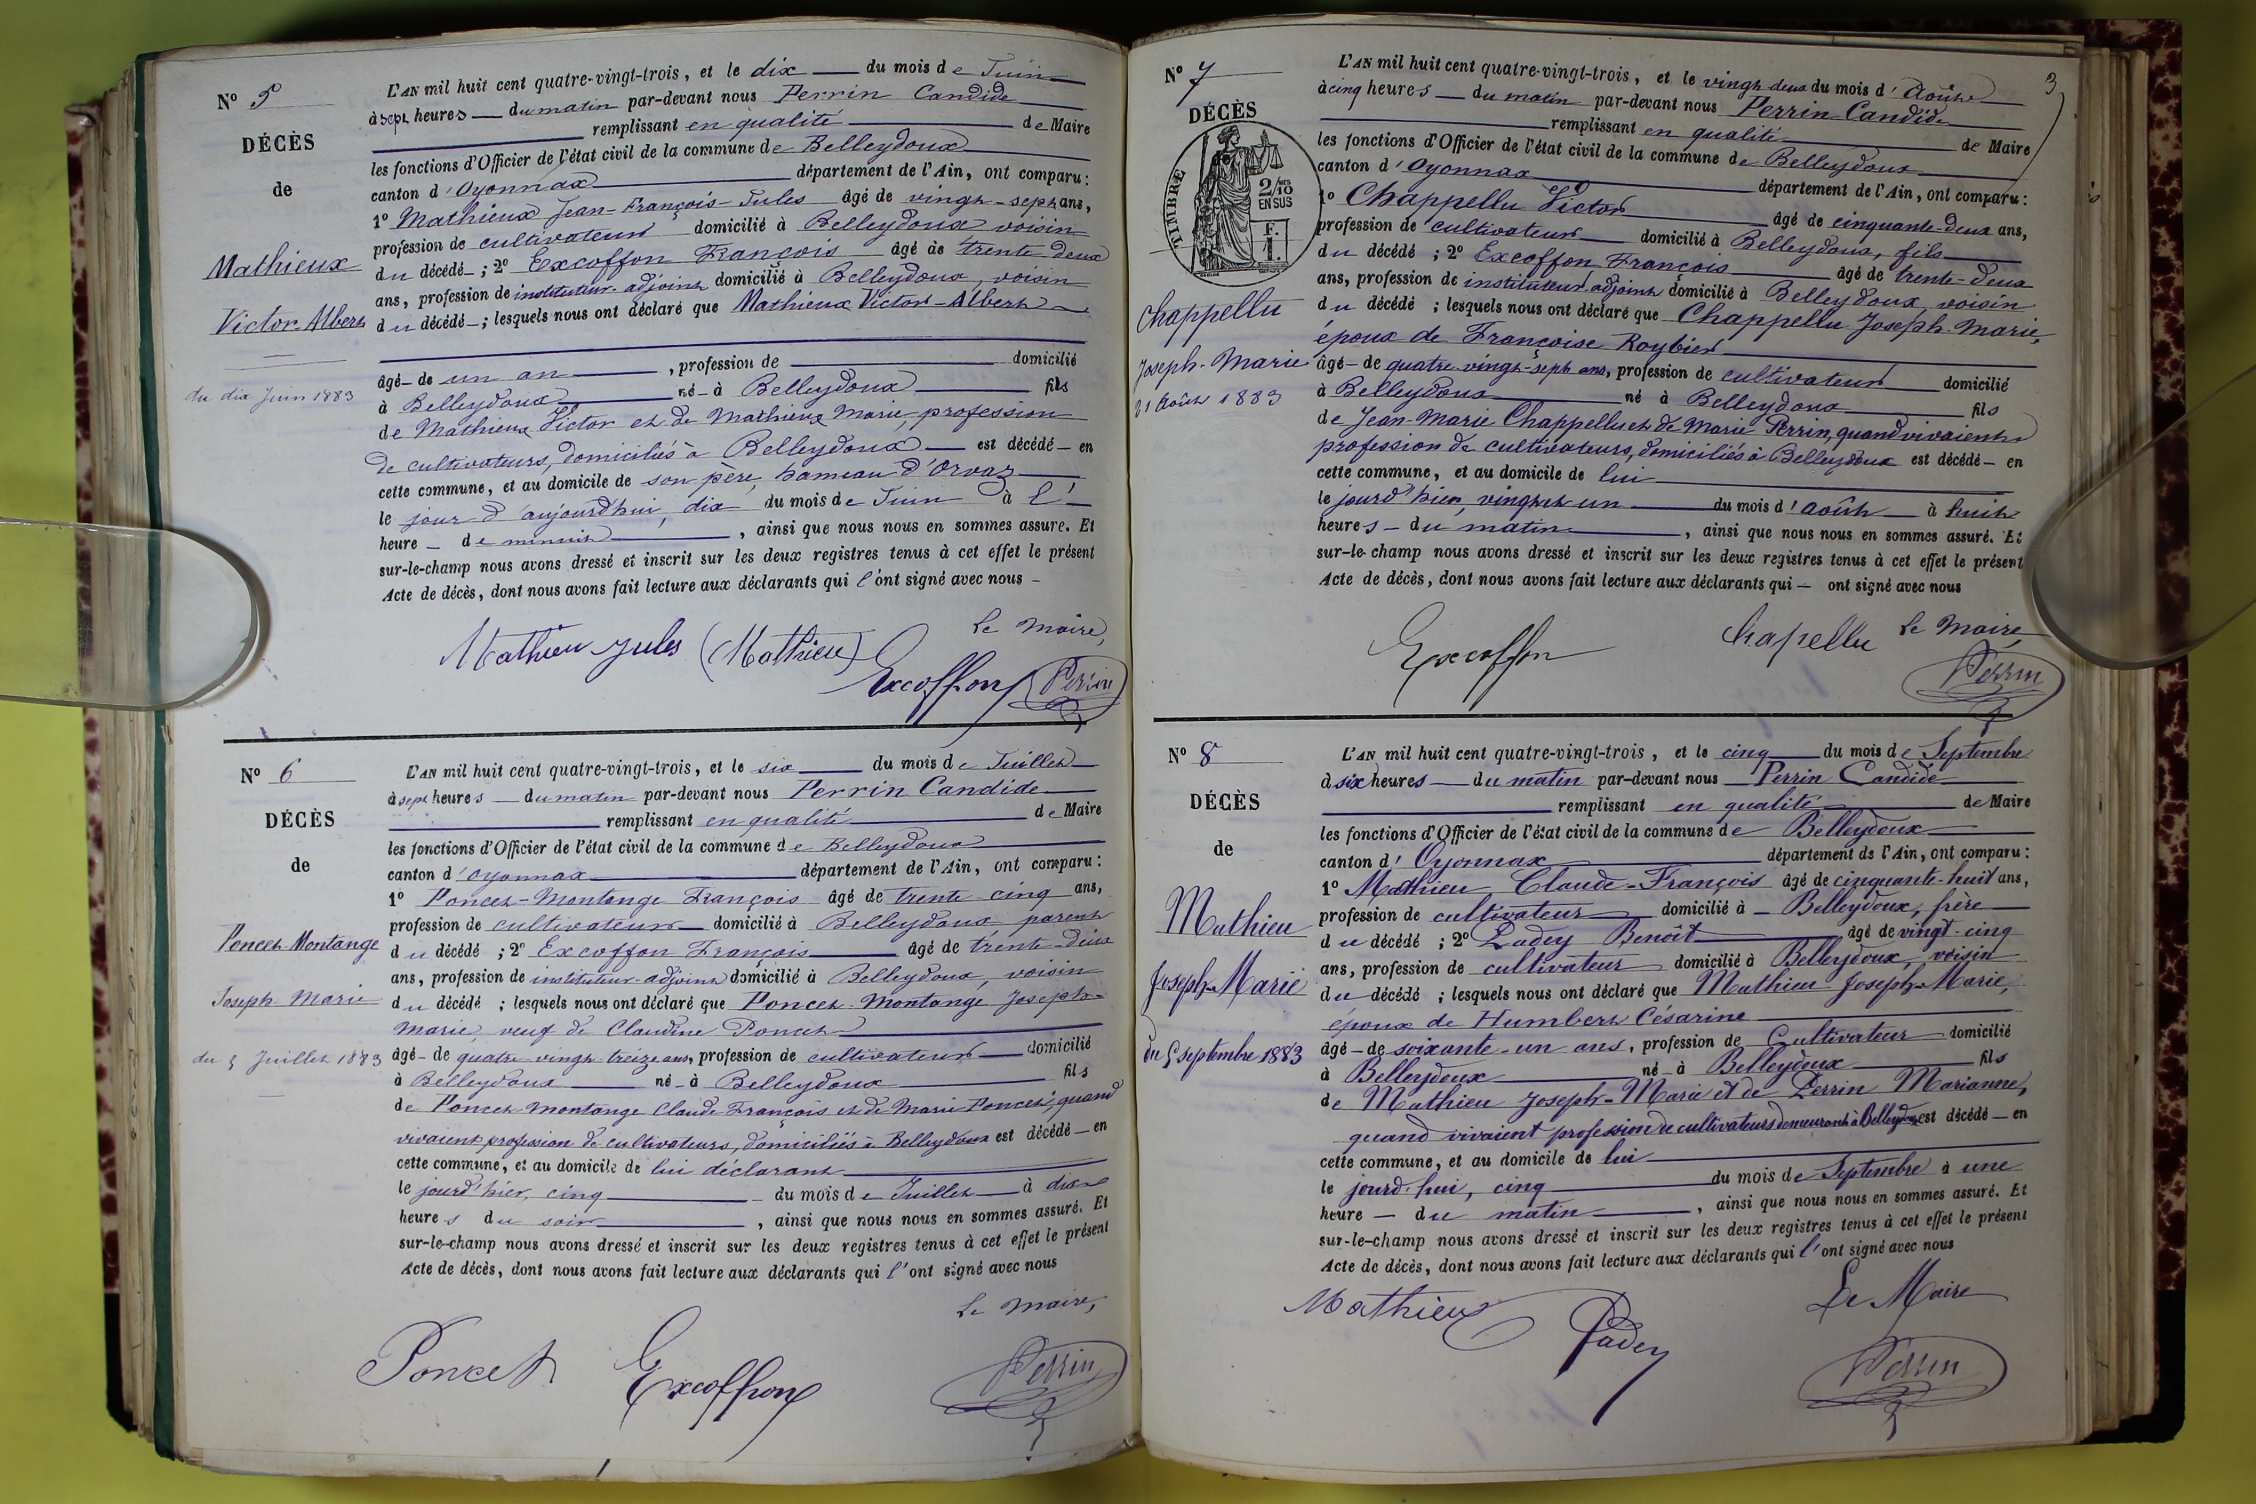 N° 5
DÉCÈS
de
Mathieux
Victor-Albert
du dix Juin 1883
L'AN mil huit cent quatre-vingt-trois, et le dix du mois de Juin
à sept heures du matin par-devant nous Perrin Candide
remplissant en qualité de Maire
les fonctions d'Officier de l'état civil de la commune de Belleydoux
canton d'Oyonnax département de l'Ain, ont comparu :
1° Mathieux Jean-François-Jules âgé de vingt-sept ans,
profession de cultivateur domicilié à Belleydoux voisin
du décédé ; 2° Excoffon François âgé de trente deux
ans, profession de instituteur-adjoint domicilié à Belleydoux, voisin
du décédé ; lesquels nous ont déclaré que Mathieux Victor-Albert
âgé de un an, profession de domicilié
à Belleydoux né à Belleydoux fils
de Mathieux Victor et de Mathieux Marie, profession
de cultivateurs, domiciliés à Belleydoux est décédé en
cette commune, et au domicile de son père, hameau d'Orvaz
le jour d'aujourd'hui, dix du mois de Juin à l'
heure de minuit, ainsi que nous nous en sommes assuré. Et
sur-le-champ nous avons dressé et inscrit sur les deux registres tenus à cet effet le présent
Acte de décès, dont nous avons fait lecture aux déclarants qui l'ont signé avec nous
Le Maire,
Mathieu Jules (Mathieu) Excoffon Perrin
N° 6
DÉCÈS
de
Poncet-Montange
Joseph Marie
du 5 Juillet 1883
L'AN mil huit cent quatre-vingt-trois, et le six du mois de Juillet
à sept heures du matin par-devant nous Perrin Candide
remplissant en qualité de Maire
les fonctions d'Officier de l'état civil de la commune de Belleydoux
canton d'Oyonnax département de l'Ain, ont comparu :
1° Poncet-Montange François âgé de trente cinq ans,
profession de cultivateur domicilié à Belleydoux parent
du décédé ; 2° Excoffon François âgé de trente-deux
ans, profession de instituteur-adjoint domicilié à Belleydoux, voisin
du décédé ; lesquels nous ont déclaré que Poncet-Montange Joseph-
Marie, veuf de Claudine Poncet
âgé de quatre vingt treize ans, profession de cultivateur domicilié
à Belleydoux né à Belleydoux fils
de Poncet-Montange Claude-François et de Marie Poncet, quand
vivaient profession de cultivateurs, domiciliés à Belleydoux est décédé en
cette commune, et au domicile de lui déclarant
le jourd'hier, cinq du mois de Juillet à dix
heures du soir, ainsi que nous nous en sommes assuré. Et
sur-le-champ nous avons dressé et inscrit sur les deux registres tenus à cet effet le présent
Acte de décès, dont nous avons fait lecture aux déclarants qui l'ont signé avec nous
Le Maire,
Poncet Excoffon Perrin
3
N° 7
DÉCÈS
TIMBRE
2/10 EN SUS
F. 1.
Chappellu
Joseph-Marie
21 Août 1883
L'AN mil huit cent quatre-vingt-trois, et le vingt deux du mois d'Août
à cinq heures du matin par-devant nous Perrin Candide
remplissant en qualité de Maire
les fonctions d'Officier de l'état civil de la commune de Belleydoux
canton d'Oyonnax département de l'Ain, ont comparu :
1° Chappellu Victor âgé de cinquante-deux ans,
profession de cultivateur domicilié à Belleydoux, fils
du décédé ; 2° Excoffon François âgé de trente-deux
ans, profession de instituteur adjoint domicilié à Belleydoux, voisin
du décédé ; lesquels nous ont déclaré que Chappellu Joseph-Marie,
époux de Françoise Roybier
âgé de quatre vingt-sept ans, profession de cultivateur domicilié
à Belleydoux né à Belleydoux fils
de Jean-Marie Chappellu et de Marie Perrin, quand vivaient
profession de cultivateurs, domiciliés à Belleydoux est décédé en
cette commune, et au domicile de lui
le jourd'hier, vingt et un du mois d'août à huit
heures du matin, ainsi que nous nous en sommes assuré. Et
sur-le-champ nous avons dressé et inscrit sur les deux registres tenus à cet effet le présent
Acte de décès, dont nous avons fait lecture aux déclarants qui ont signé avec nous
Excoffon Chapellu Le Maire,
Perrin
N° 8
DÉCÈS
de
Mathieu
Joseph-Marie
du 5 septembre 1883
L'AN mil huit cent quatre-vingt-trois, et le cinq du mois de Septembre
à six heures du matin par-devant nous Perrin Candide
remplissant en qualité de Maire
les fonctions d'Officier de l'état civil de la commune de Belleydoux
canton d'Oyonnax département de l'Ain, ont comparu :
1° Mathieu Claude-François âgé de cinquante-huit ans,
profession de cultivateur domicilié à Belleydoux, frère
du décédé ; 2° Padey Benoît âgé de vingt-cinq
ans, profession de cultivateur domicilié à Belleydoux, voisin
du décédé ; lesquels nous ont déclaré que Mathieu Joseph-Marie,
époux de Humbert Césarine
âgé de soixante-un ans, profession de Cultivateur domicilié
à Belleydoux né à Belleydoux fils
de Mathieu Joseph-Marie et de Perrin Marianne,
quand vivaient profession de cultivateurs demeurant à Belleydoux est décédé en
cette commune, et au domicile de lui
le jourd'hui, cinq du mois de Septembre à une
heure du matin, ainsi que nous nous en sommes assuré. Et
sur-le-champ nous avons dressé et inscrit sur les deux registres tenus à cet effet le présent
Acte de décès, dont nous avons fait lecture aux déclarants qui l'ont signé avec nous
Mathieu Padey Le Maire
Perrin